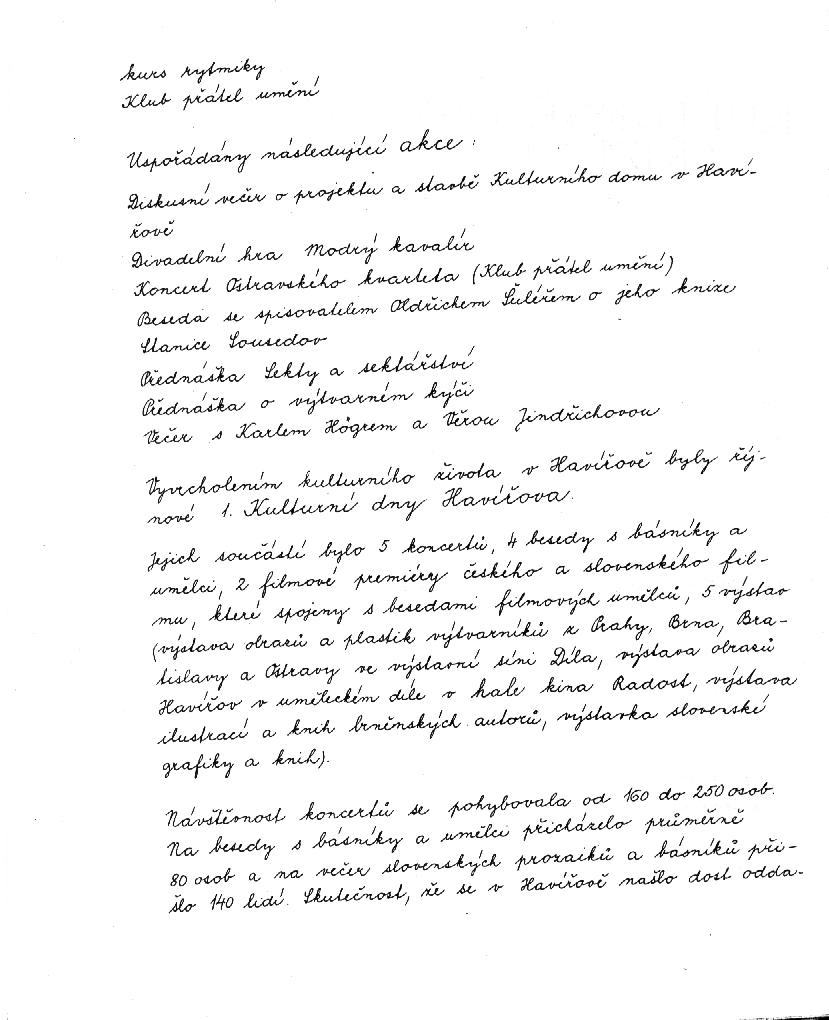 kurs rytmiky
Klub přátel umění
Uspořádány následující akce:
Diskusní večer o projektu a stavbě Kulturního domu v Haví-
řově
Divadelní hra Modrý kavalír
Koncert Ostravského kvarteta (Klub přátel umění)
Beseda se spisovatelem Oldřichem Šuléřem o jeho knize
Stanice Sousedov
Přednáška Sekty a sektářství
Přednáška o výtvarném kýči
Večer s Karlem Högrem a Věrou Jindřichovou
Vyvrcholením kulturního života v Havířově byly říj-
nové 1. Kulturní dny Havířova.
Jejich součástí bylo 5 koncertů, 4 besedy s básníky a
umělci, 2 filmové premiéry českého a slovenského fil-
mu, které spojeny s besedami filmových umělců, 5 výstav
(výstava obrazů a plastik výtvarníků z Prahy, Brna, Bra-
tislavy a Ostravy ve výstavní síni Díla, výstava obrazů
Havířov v uměleckém díle v hale kina Radost, výstava
ilustrací a knih brněnských autorů, výstavka slovenské
grafiky a knih).
Návštěvnost koncertů se pohybovala od 160 do 250 osob.
Na besedy s básníky a umělci přicházelo průměrně
80 osob a na večer slovenských prozaiků a básníků při-
šlo 140 lidí. Skutečnost, že se v Havířově našlo dost odda-